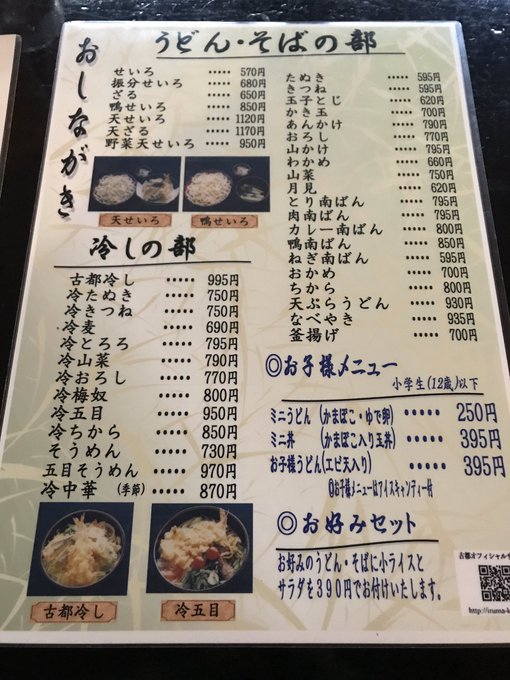 おしながき
うどん・そばの部
せいろ ・・・・・ 570円
振分せいろ ・・・・・ 680円
ざる ・・・・・ 650円
鴨せいろ ・・・・・ 850円
天せいろ ・・・・・ 1120円
天ざる ・・・・・ 1170円
野菜天せいろ ・・・・・ 950円
天せいろ
鴨せいろ
冷しの部
古都冷し ・・・・・ 995円
冷たぬき ・・・・・ 750円
冷きつね ・・・・・ 750円
冷麦 ・・・・・ 690円
冷とろろ ・・・・・ 795円
冷山菜 ・・・・・ 790円
冷おろし ・・・・・ 770円
冷梅奴 ・・・・・ 800円
冷五目 ・・・・・ 950円
冷ちから ・・・・・ 850円
そうめん ・・・・・ 730円
五目そうめん ・・・・・ 970円
冷中華 (季節) ・・・・・ 870円
古都冷し
冷五目
たぬき ・・・・・ 595円
きつね ・・・・・ 595円
玉子とじ ・・・・・ 620円
かき玉 ・・・・・ 700円
あんかけ ・・・・・ 790円
おろし ・・・・・ 770円
山かけ ・・・・・ 795円
わかめ ・・・・・ 660円
山菜 ・・・・・ 750円
月見 ・・・・・ 620円
とり南ばん ・・・・・ 795円
肉南ばん ・・・・・ 795円
カレー南ばん ・・・・・ 800円
鴨南ばん ・・・・・ 850円
ねぎ南ばん ・・・・・ 595円
おかめ ・・・・・ 700円
ちから ・・・・・ 800円
天ぷらうどん ・・・・・ 930円
なべやき ・・・・・ 935円
釜揚げ ・・・・・ 700円
◎お子様メニュー
小学生(12歳)以下
ミニうどん (かまぼこ・ゆで卵) ・・・・・ 250円
ミニ丼 (かまぼこ入り玉丼) ・・・・・ 395円
お子様うどん(エビ天入り) ・・・・・ 395円
◎お子様メニューはアイスキャンディー付
◎お好みセット
お好みのうどん・そばに小ライスと
サラダを390円でお付けいたします。
古都オフィシャル
http://iruma-k